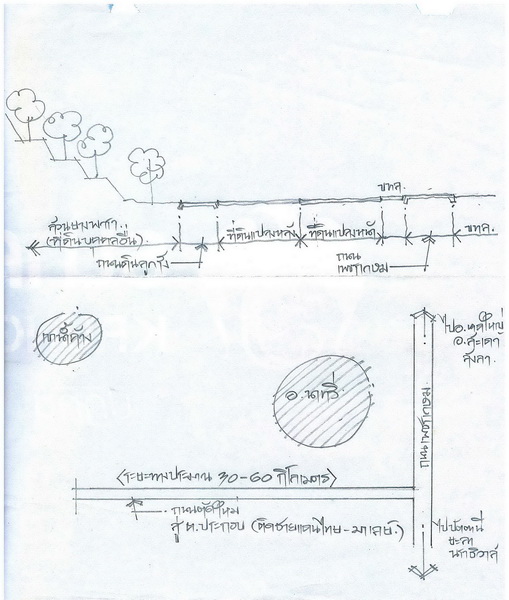 ขทล.
สวนยางพารา
(ที่ดินบุคคลอื่น)
ที่ดินแปลงหลัง
ที่ดินแปลงหน้า
ขทล.
ถนนดินลูกรัง
ถนน
เพชรเกษม
เขาน้ำค้าง
อ.นาทวี
ไปอ.หาดใหญ่
อ.สะเดา
สงลา
ถนนเพชรเกษม
<ระยะทางประมาณ 30-60 กิโลเมตร>
ถนนตัดใหม่
สู่ ต.ประกอบ (ติดชายแดนไทย-มาเลย์.)
ไปปัตตานี
ยะลา
นราธิวาส